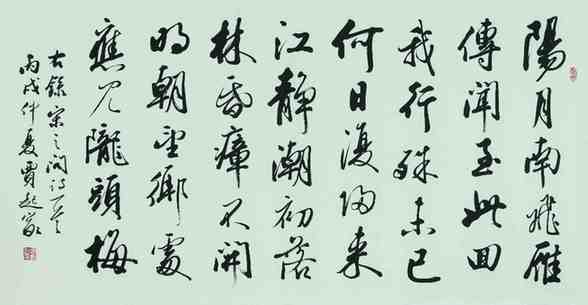 陽月南飛雁
傳聞至此回
我行殊未已
何日復歸来
江靜潮初落
林昏瘴不開
明朝望鄉處
應見隴頭梅
右錄宋之問詩一首
丙戌仲夏賈起家